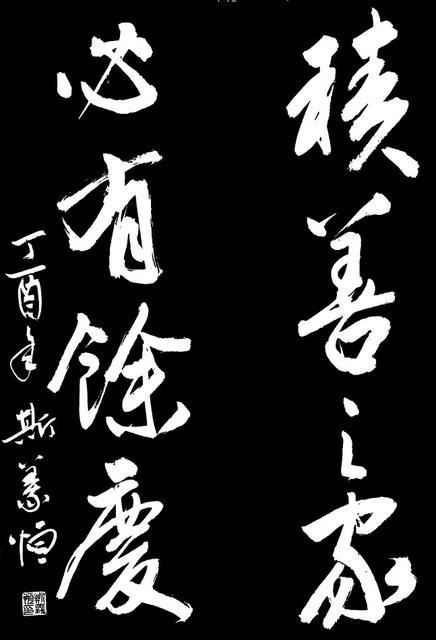 積善之家
必有餘慶
丁酉年 斯義恒